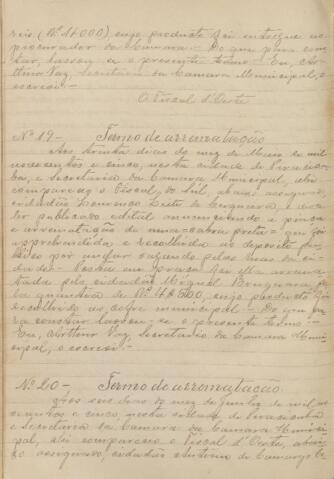 reis (Rs. 14$000), cujo producto foi entregue ao
procurador da Camara. Do que para cons-
tar, lavrou-se o presente termo. Eu, Ar-
thur Vaz, Secretario da Camara Municipal, o
escrevi.
O Fiscal d'Oeste
Nº 19 - Termo de arrematação
Aos trinta dias do mez de Maio de mil
novecentos e cinco, nesta cidade de Piracica-
ba, e Secretaria da Camara Municipal, ahi
compareceu o Fiscal do Sul, abaixo assignado,
cidadão Lourenço Leite de Cerqueira, e
ter publicado edital annunciando a praça
e arrematação de uma cabra preta que foi
apprehendida e recolhida ao deposito
por andar vagando pelas ruas da ci-
dade. Posta em praça foi ella arrema-
tada pelo cidadão Miguel
pela quantia de Rs. 4$500, cujo producto foi
recolhido ao cofre municipal. Do que pa-
ra constar lavrou-se o presente termo.
Eu, Arthur Vaz, Secretario da Camara Muni-
cipal, o escrevi.
Nº 20 - Termo de arrematação
Aos seis dias do mez de Junho de mil no-
vecentos e cinco nesta cidade de Piracicaba
e Secretaria da Camara da Camara Munici-
pal, ahi compareceu o Fiscal d'Oeste, abai-
xo assignado, cidadão Antonio de Camargo